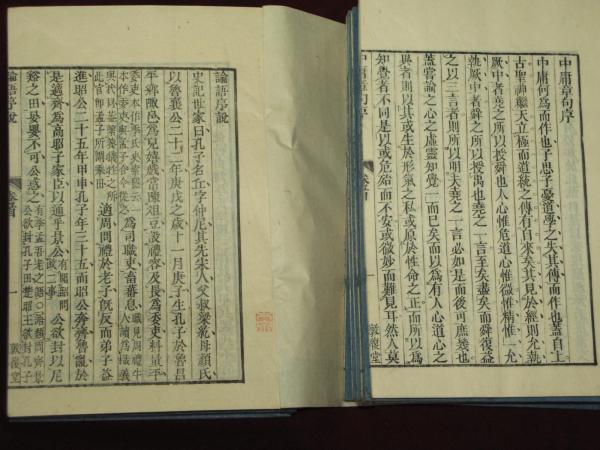 中庸章句序
中庸何爲而作也子思子憂道學之失其傳而作也蓋自上
古聖神繼天立極而道統之傳有自來矣其見於經則允執
厥中者堯之所以授舜也人心惟危道心惟微惟精惟一允
執厥中者舜之所以授禹也堯之一言至矣盡矣而舜復益
之以三言者則所以明夫堯之一言必如是而後可庶幾也
蓋嘗論之心之虛靈知覺一而已矣而以爲有人心道心之
異者則以其或生於形氣之私或原於性命之正而所以爲
知覺者不同是以或危殆而不安或微妙而難見耳然人莫
中庸章句序
卷首
敦復堂
論語序說
史記世家曰孔子名丘字仲尼其先宋人父叔梁紇母顏氏
以魯襄公二十二年庚戌之歲十一月庚子生孔子於魯昌
平鄉陬邑爲兒嬉戲常陳俎豆設禮容及長爲委吏料量平
委吏本作季氏史索隱云一本作委吏與孟子合今從之
爲司職吏畜蕃息
適周問禮於老子旣反而弟子益
進昭公二十五年甲申孔子年三十五而昭公奔齊魯亂於
是適齊爲高昭子家臣以通乎景公
有聞韶問政二事
公欲封以尼
谿之田晏嬰不可公惑之
論語序說
卷首
敦復堂